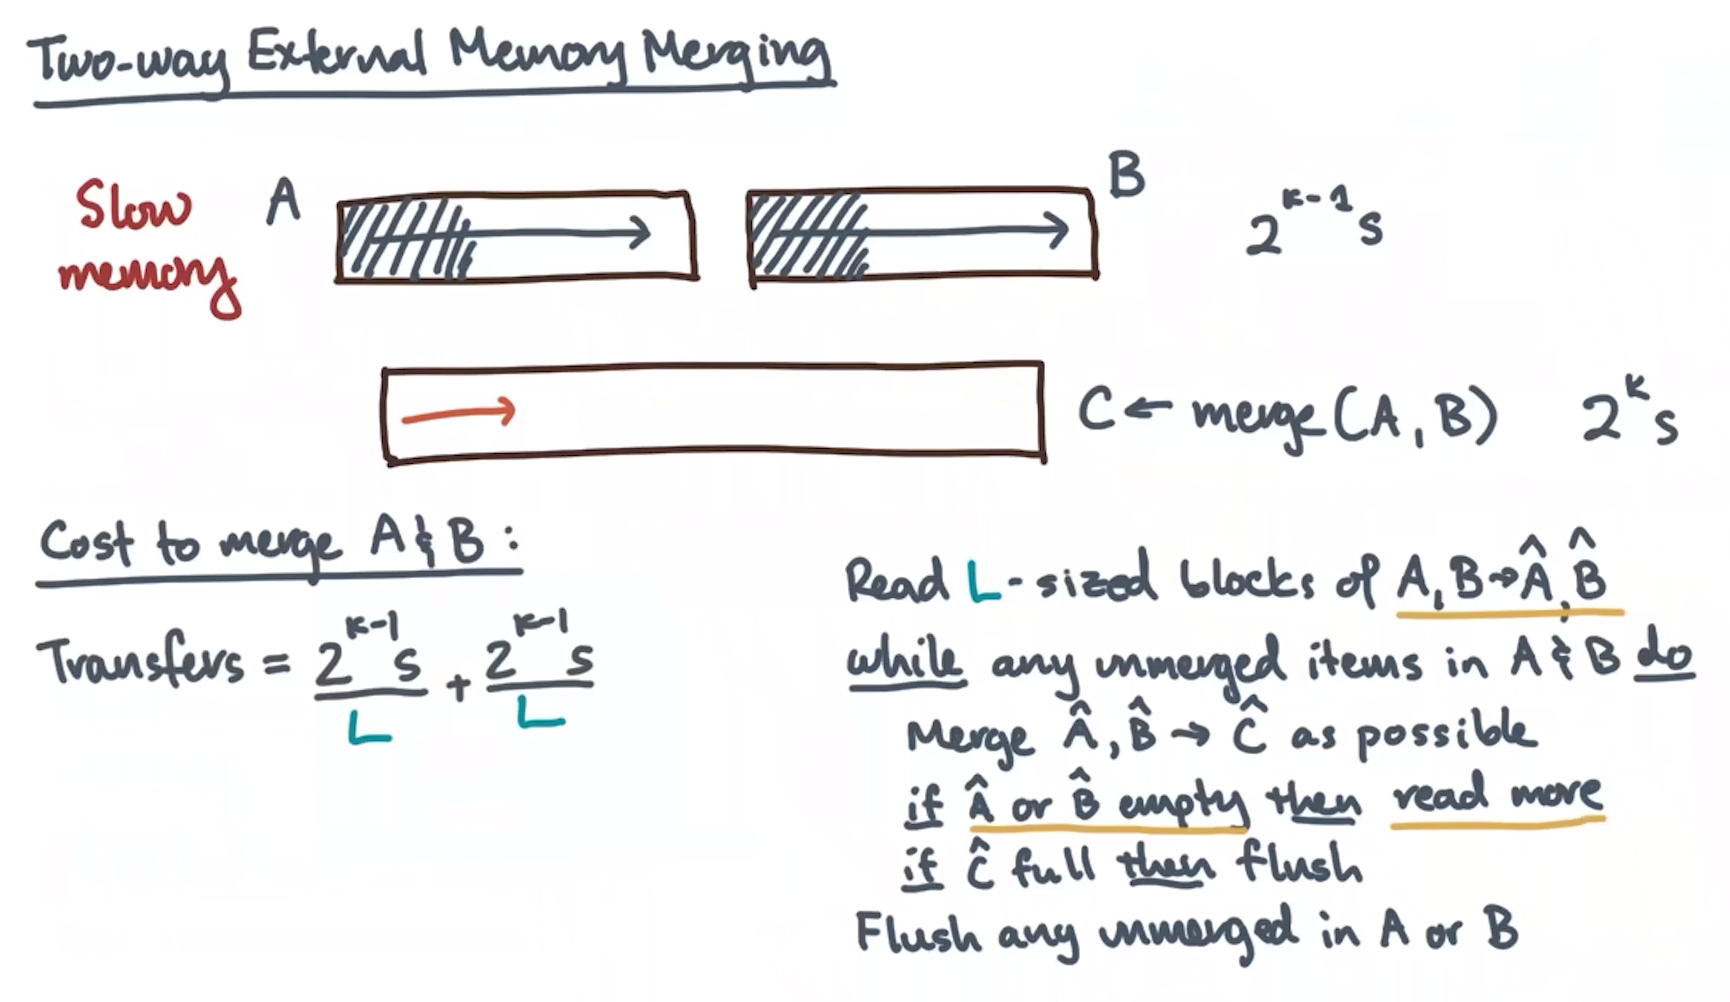 Two-way External Memory Merging
Slow memory
A
B
2^{k-1}s
C ← merge(A, B)
2^k s
Cost to merge A & B :
Transfers = 2^{k-1}s / L + 2^{k-1}s / L
Read L-sized blocks of A, B → Â, B̂
while any unmerged items in A & B do
Merge Â, B̂ → Ĉ as possible
if Â or B̂ empty then read more
if Ĉ full then flush
Flush any unmerged in A or B